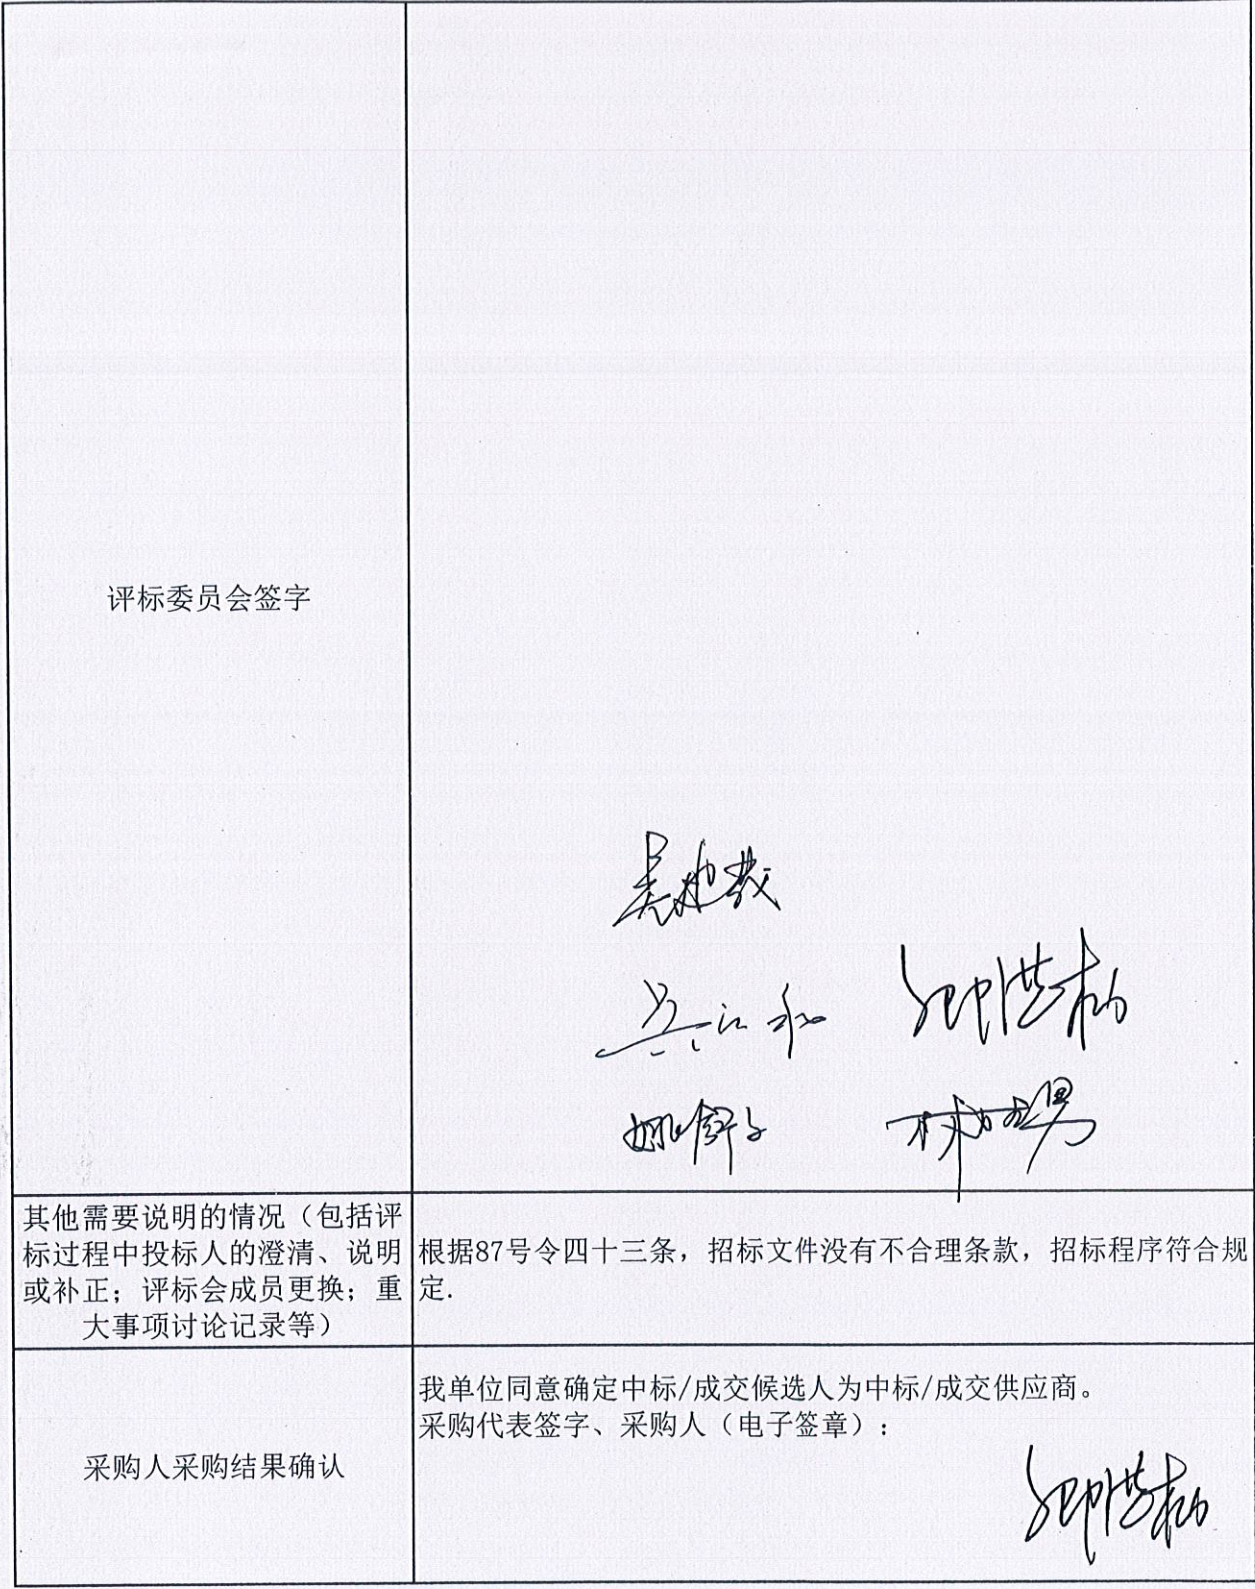 评标委员会签字
其他需要说明的情况（包括评
标过程中投标人的澄清、说明
或补正；评标会成员更换；重
大事项讨论记录等）
根据87号令四十三条，招标文件没有不合理条款，招标程序符合规
定.
采购人采购结果确认
我单位同意确定中标/成交候选人为中标/成交供应商。
采购代表签字、采购人（电子签章）：